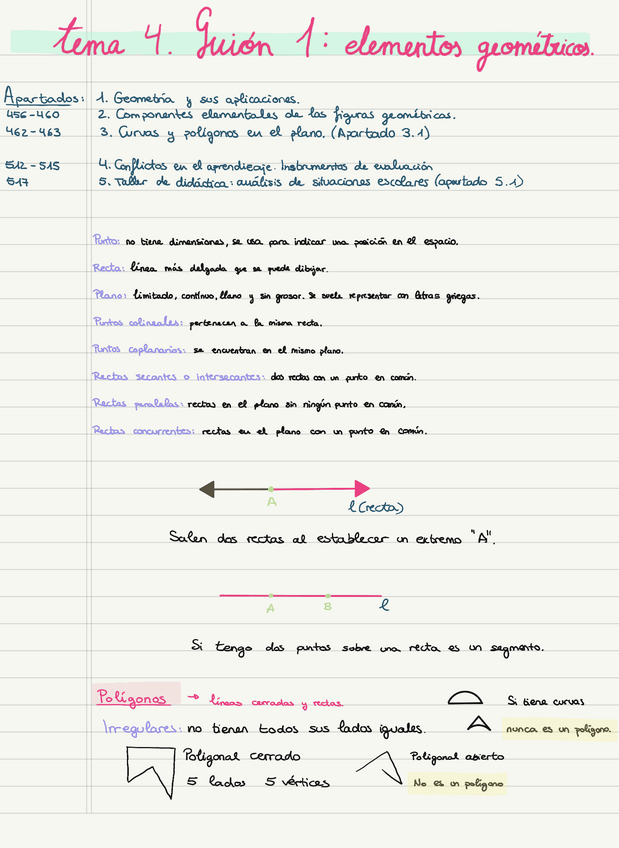 tema 4. Guión 1: elementos geométricos.
Apartados: 1. Geometría y sus aplicaciones.
456-460 2. Componentes elementales de las figuras geométricas.
462-463 3. Curvas y polígonos en el plano. (Apartado 3.1)
512-515 4. Conflictos en el aprendizaje. Instrumentos de evaluación
517 5. Taller de didáctica: análisis de situaciones escolares (apartado 5.1)
Punto: no tiene dimensiones, se usa para indicar una posición en el espacio.
Recta: línea más delgada que se puede dibujar.
Plano: limitado, continuo, llano y sin grosor. Se suele representar con letras griegas.
Puntos colineales: pertenecen a la misma recta.
Puntos coplanarios: se encuentran en el mismo plano.
Rectas secantes o intersecantes: dos rectas con un punto en común.
Rectas paralelas: rectas en el plano sin ningún punto en común.
Rectas concurrentes: rectas en el plano con un punto en común.
A
l (recta)
Salen dos rectas al establecer un extremo "A".
A B l
Si tengo dos puntos sobre una recta es un segmento.
Polígonos → líneas cerradas y rectas. Si tiene curvas
Irregulares: no tienen todos sus lados iguales. nunca es un polígono.
Poligonal cerrado Poligonal abierto
5 lados 5 vértices No es un polígono